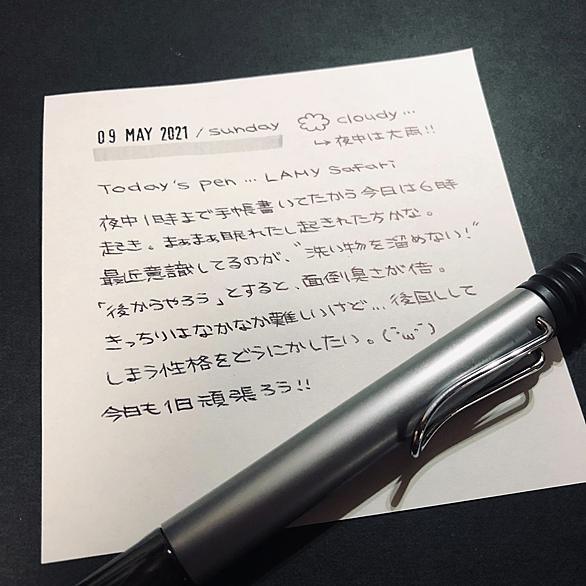 09 MAY 2021 / sunday cloudy...
↳ 夜中は大雨!!
Today's pen... LAMY Safari
夜中1時まで手帳書いてたから今日は6時
起き。まぁまぁ眠れたし起きれた方かな。
最近意識してるのが、"洗い物を溜めない!"
「後からやろう」とすると、面倒臭さが倍。
きっちりはなかなか難しいけど...後回しして
しまう性格をどうにかしたい。(˘•ω•˘)
今日も1日頑張ろう!!